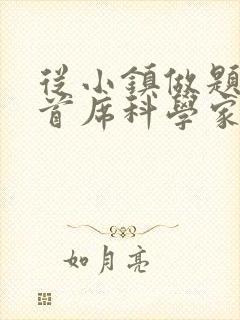 從小鎮做題
首席科學家
如月亮